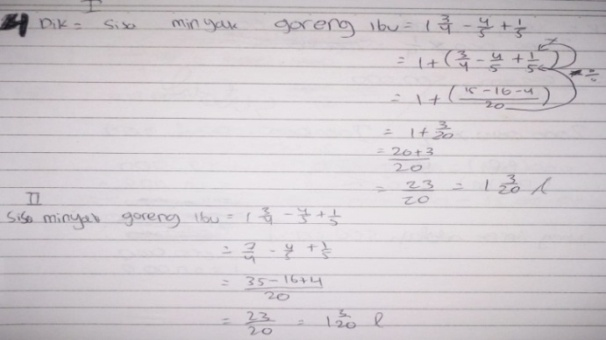 I
4 Dik = Siso minyak goreng ibu = 1 3/4 - 4/5 + 1/5
= 1 + (3/4 - 4/5 + 1/5)
= 1 + (15 - 16 - 4 / 20)
= 1 + 3/20
= 20+3 / 20
= 23/20 = 1 3/20 l
II
Siso minyak goreng ibu = 1 3/4 - 4/5 + 1/5
= 7/4 - 4/5 + 1/5
= 35 - 16 + 4 / 20
= 23/20 = 1 3/20 l